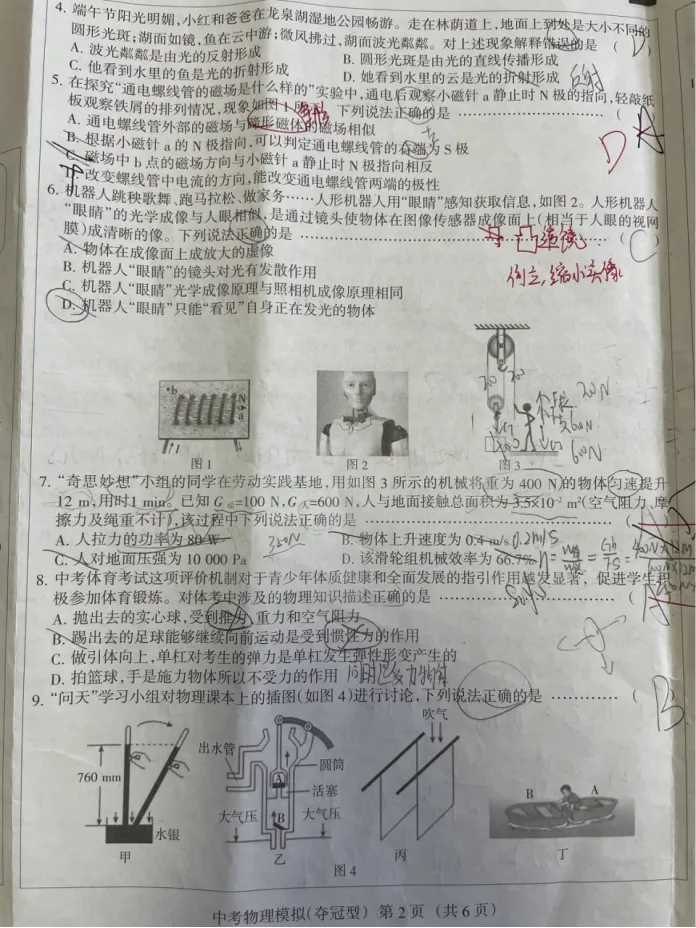 4. 端午节阳光明媚，小红和爸爸在龙泉湖湿地公园畅游。走在林荫道上，地面上到处是大小不同的
圆形光斑；湖面如镜，鱼在云中游；微风拂过，湖面波光粼粼。对上述现象解释错误的是 （D）
A. 波光粼粼是由光的反射形成 B. 圆形光斑是由光的直线传播形成
C. 他看到水里的鱼是光的折射形成 D. 她看到水里的云是光的折射形成 反射
5. 在探究“通电螺线管的磁场是什么样的”实验中，通电后观察小磁针 a 静止时 N 极的指向，轻敲纸
板观察铁屑的排列情况，现象如图 1 所示。下列说法正确的是 …………………………（
A. 通电螺线管外部的磁场与蹄形磁体的磁场相似
B. 根据小磁针 a 的 N 极指向，可以判定通电螺线管的右端为 S 极
D
C. 磁场中 b 点的磁场方向与小磁针 a 静止时 N 极指向相反
D. 改变螺线管中电流的方向，能改变通电螺线管两端的极性
6. 机器人跳秧歌舞、跑马拉松、做家务……人形机器人用“眼睛”感知获取信息，如图 2。人形机器人
“眼睛”的光学成像与人眼相似，是通过镜头使物体在图像传感器成像面上（相当于人眼的视网
膜）成清晰的像。下列说法正确的是 ……………………………………（C）
凸透镜
A. 物体在成像面上成放大的虚像
B. 机器人“眼睛”的镜头对光有发散作用
倒立、缩小实像
C. 机器人“眼睛”光学成像原理与照相机成像原理相同
D. 机器人“眼睛”只能“看见”自身正在发光的物体
b
N
a
I
I
图 1
图 2
图 3
200N
600N
7. “奇思妙想”小组的同学在劳动实践基地，用如图 3 所示的机械将重为 400 N)的物体匀速提升
12 m，用时1 min。已知 G动=100 N，G人=600 N，人与地面接触总面积为 3.5×10⁻² m²（空气阻力、摩
擦力及绳重不计），该过程中下列说法正确的是 …………………………（
A. 人拉力的功率为 80 W B. 物体上升速度为 0.4 m/s 0.2m/s
C. 人对地面压强为 10 000 Pa D. 该滑轮组机械效率为 66.7%
8. 中考体育考试这项评价机制对于青少年体质健康和全面发展的指引作用越发显著，促进学生积
极参加体育锻炼。对体考中涉及的物理知识描述正确的是 …………………（
A. 抛出去的实心球，受到推力、重力和空气阻力
B. 踢出去的足球能够继续向前运动是受到惯性力的作用
C. 做引体向上，单杠对考生的弹力是单杠发生弹性形变产生的
D. 拍篮球，手是施力物体所以不受力的作用
9. “问天”学习小组对物理课本上的插图（如图 4）进行讨论，下列说法正确的是 …………（
B
760 mm
水银
甲
出水管
圆筒
A
活塞
大气压
B
大气压
乙
吹气
丙
B
A
丁
图 4
中考物理模拟（夺冠型） 第 2 页（共 6 页）